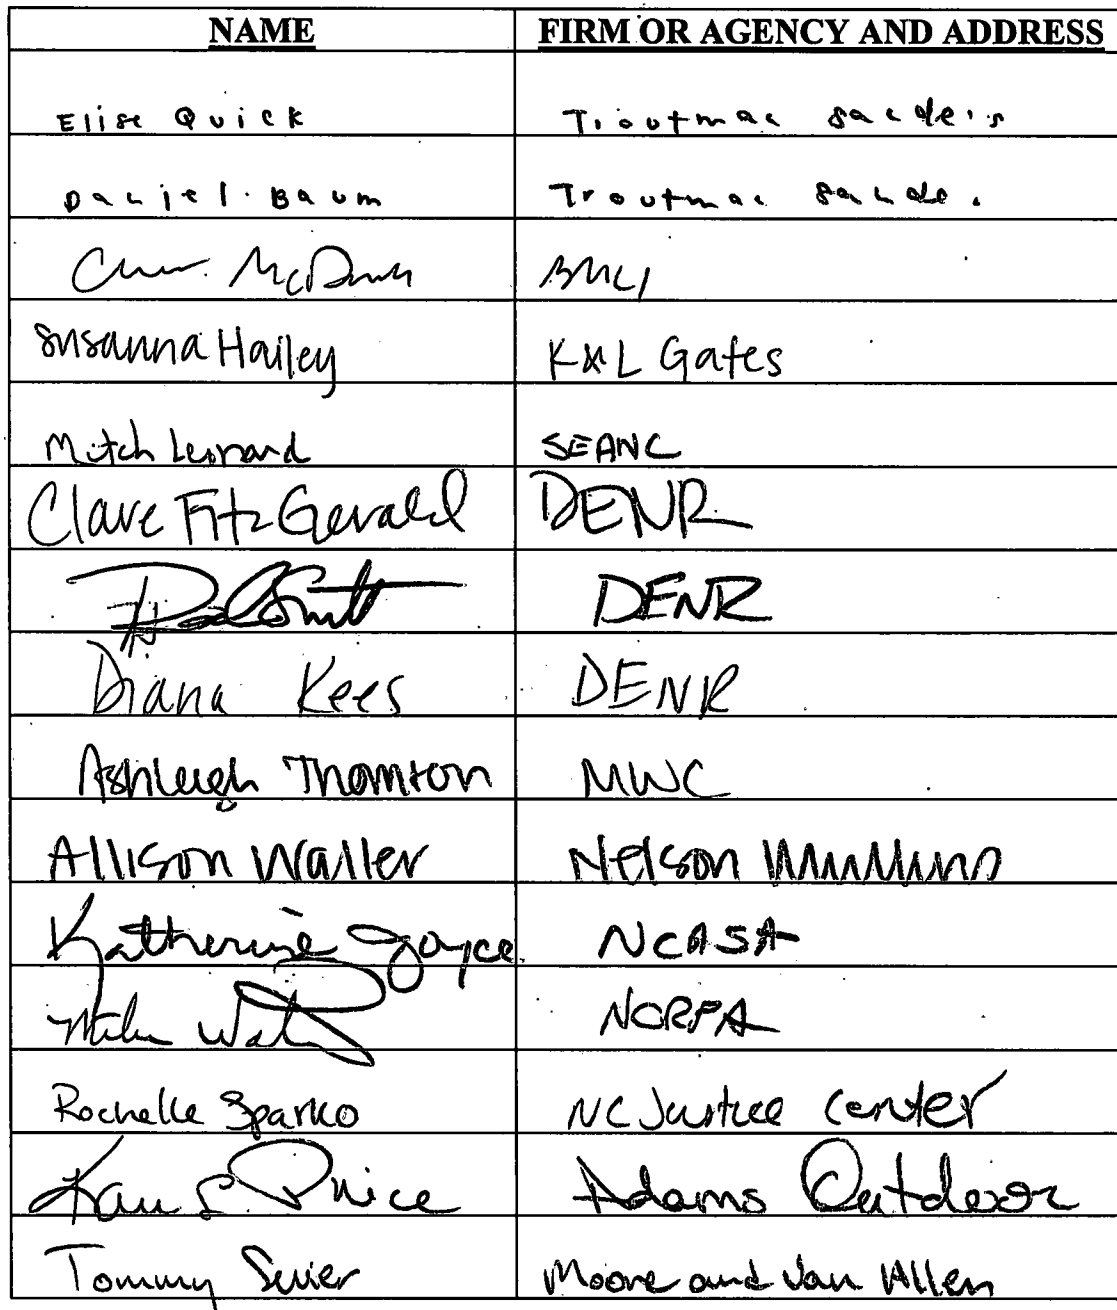 NAME FIRM OR AGENCY AND ADDRESS
Elise Quick Troutman Sanders
Daniel Baum Troutman Sande
BMCJ
Susanna Hailey K&L Gates
Mitch Leonard SEANC
Clare FitzGerald DENR
Smith DENR
Diana Kees DENR
Ashleigh Thornton MWC
Allison Waller Nelson Mullins
Katherine Joyce NCASA
Mike NCRPA
Rochelle Sparko NC Justice Center
Price Adams Outdoor
Tommy Sevier Moore and Van Allen